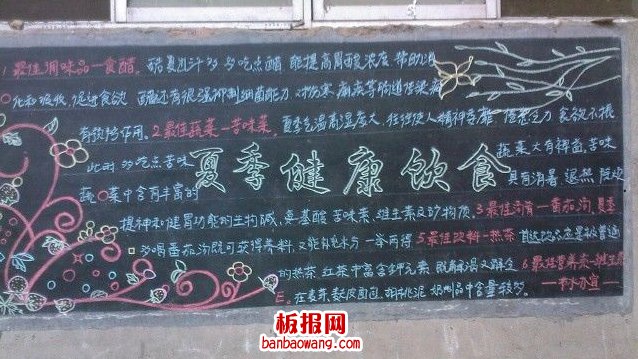 1 最佳调味品一食醋。酷夏出汗多 多吃点醋 能提高胃酸浓度 帮助消
化和吸收,促进食欲 醋还有很强抑制细菌能力 对伤寒 痢疾等肠道传染病
有预防作用。2 最佳蔬菜一苦味菜。夏季气温高湿度大 往往使人精神萎靡 倦怠乏力 食欲不振
此时 多吃点苦味 蔬菜大有裨益 苦味
夏季健康饮食
蔬菜中含有丰富的 具有消暑 退热
提神和健胃功能的生物碱 氨基酸 苦味素 维生素及矿物质。3 最佳汤肴一番茄汤 夏季
多喝番茄汤既可获得养料 又能补充水分 一举两得 5 最佳饮料一热茶
的热茶 红茶中富含钾元素 既解渴又解乏 6 最佳营养素一维生素
E。在麦芽 麸皮面包 胡桃泥 奶制品中含量较多。
板报网
banbaowang.com